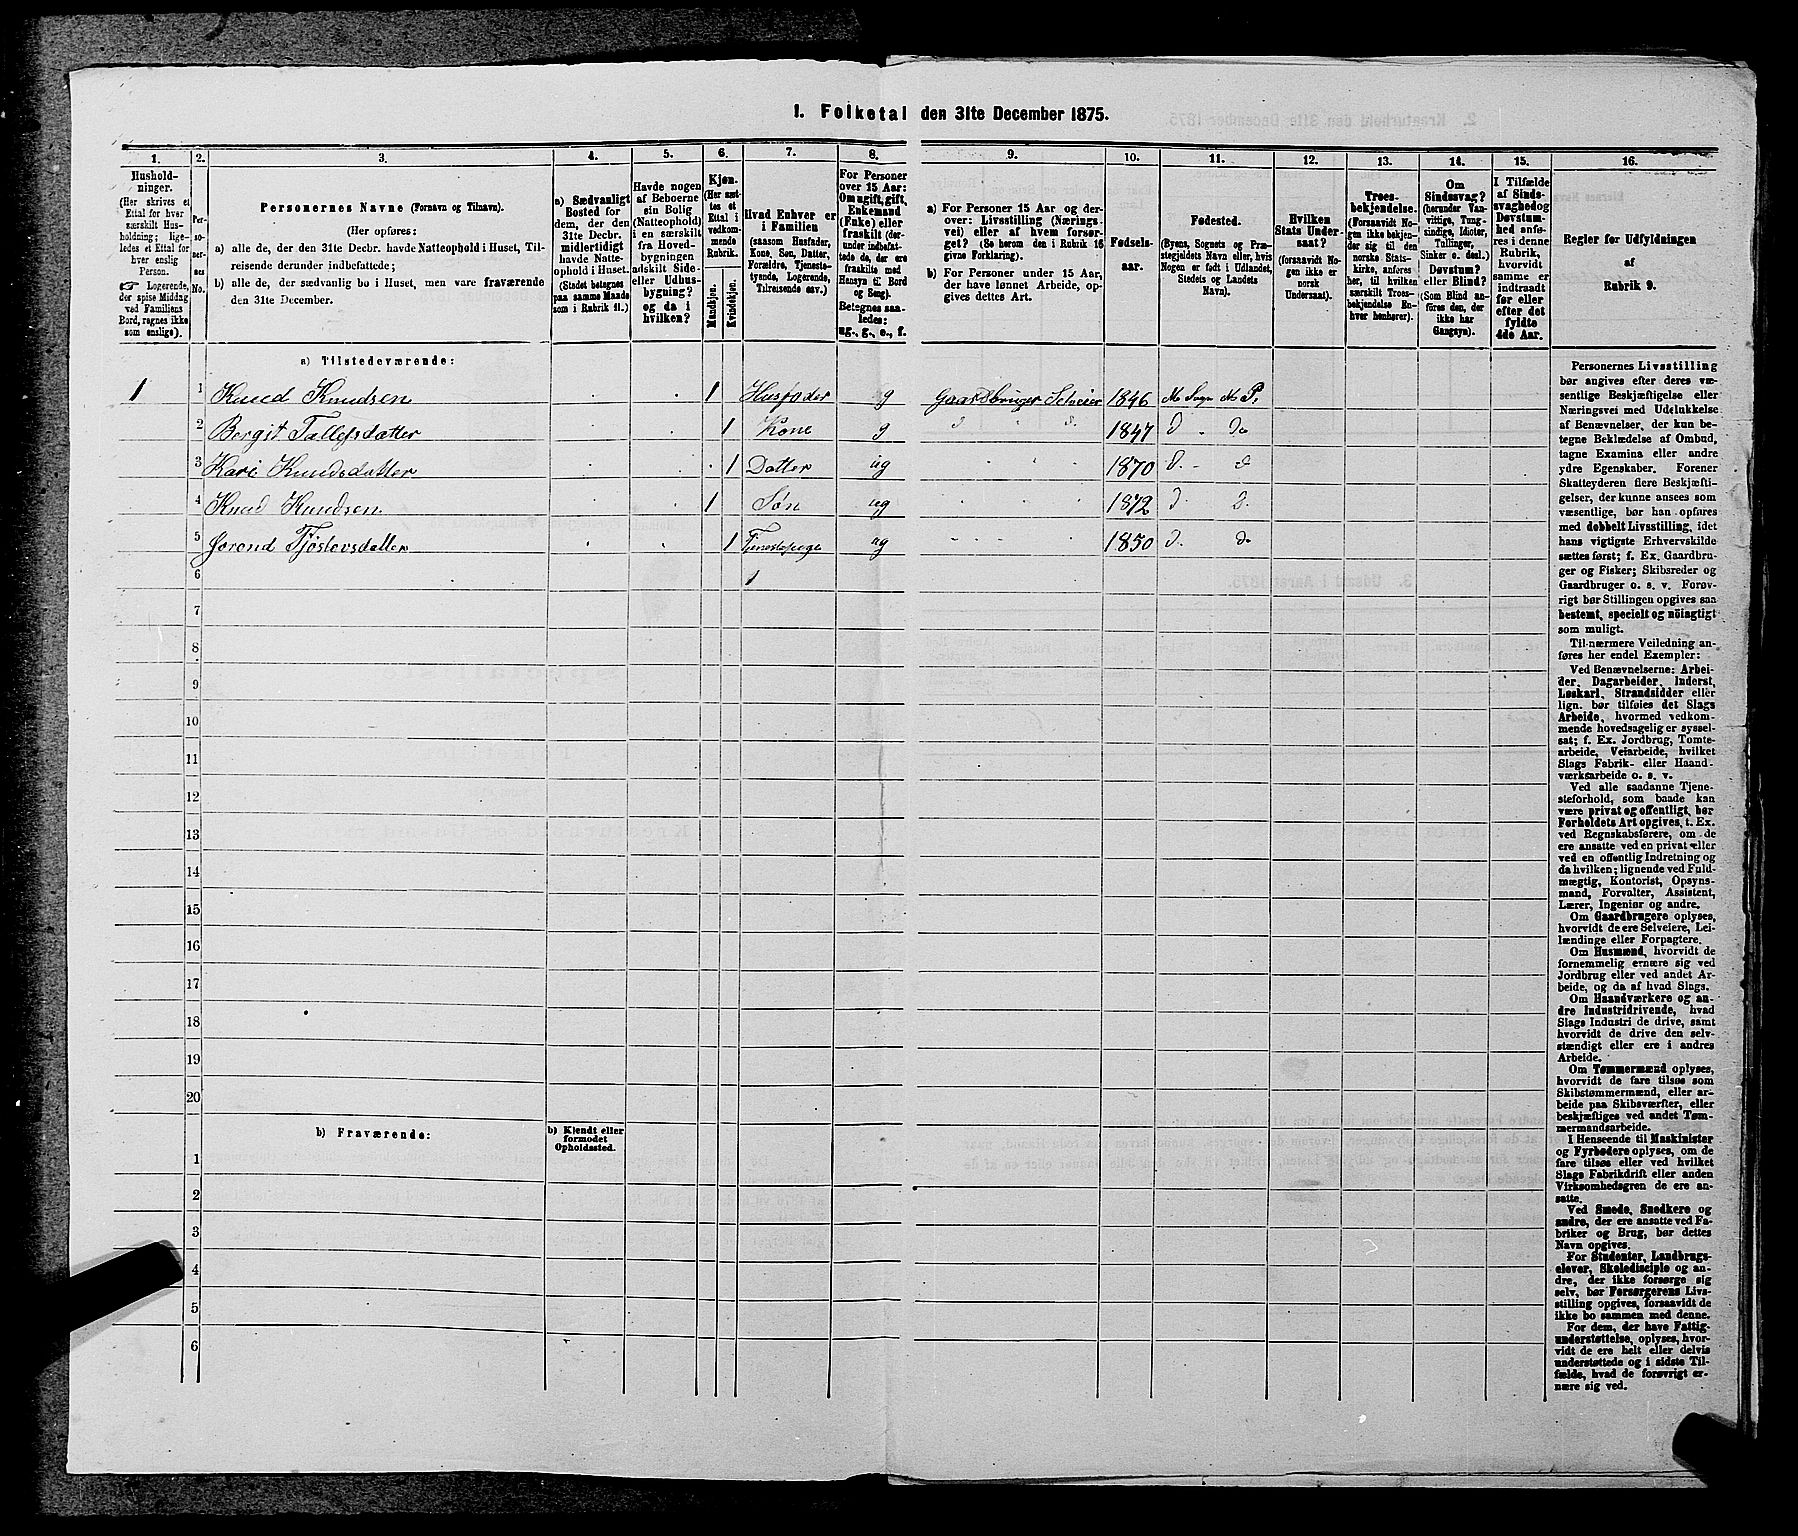 1. Folketal den 31te December 1875.
1.
2.
3.
4.
5.
6.
7.
8.
9.
10.
11.
12.
13.
14.
15.
16.
Hushold-
ninger.
(Her skrives et
Ettal for hver
særskilt Hus-
holdning; lige-
ledes et Ettal for
hver enslig
Person.
☞ Logerende,
der spise Middag
ved Familiens
Bord, regnes ikke
som enslige).
Per-
so-
ner-
nes
No.
Personernes Navne (Fornavn og Tilnavn).
(Her opføres:
a) alle de, der den 31te Decbr. havde Natteophold i Huset, Til-
reisende derunder indbefattede;
b) alle de, der sædvanlig bo i Huset, men vare fraværende
den 31te December.
a) Sædvanligt
Bosted for
dem, der den
31te Decbr.
midlertidigt
havde Natte-
ophold i Huset.
(Stedet betegnes
paa samme Maade
som i Rubrik 11.)
Havde nogen
af Beboerne
sin Bolig
(Natteophold)
i en særskilt
fra Hoved-
bygningen
adskilt Side-
eller Udhus-
bygning?
og da i
hvilken?
Kjøn.
(Her sæt-
tes et
Ettal i
vedkom-
mende
Rubrik.
Mandkjøn.
Kvindekjøn.
Hvad Enhver er
i Familien
(saasom Husfader,
Kone, Søn, Datter,
Forældre, Tjeneste-
tyende, Logerende,
Tilreisende osv.)
For Personer
over 15 Aar:
Om ugift, gift,
Enkemand
(Enke) eller
fraskilt (der-
under indbefat-
tede de, der ere
fraskilte med
Hensyn til Bord
og Seng).
Betegnes saa-
ledes:
ug., g., e., f.
a) For Personer 15 Aar og der-
over: Livsstilling (Nærings-
vei) eller af hvem forsør-
get? (Se herom den i Rubrik 16
givne Forklaring).
b) For Personer under 15 Aar,
der have lønnet Arbeide, op-
gives dettes Art.
Fødsels-
aar.
Fødested.
(Byens, Sognets og Præ-
stegjeldets Navn eller, hvis
Nogen er født i Udlandet,
Stedets og Landets
Navn).
Hvilken
Stats Under-
saat?
(forsaavidt No-
gen ikke er
norsk
Undersaat).
Troes-
bekjendelse.
(Forsaavidt No-
gen ikke bekjen-
der sig til den
norske Stats-
kirke, anføres
her, til hvilken
særskilt Troes-
bekjendelse En-
hver henhører).
Om
Sindssvag?
(herunder Van-
vittige, Tung-
sindige, Idioter,
Tullinger,
Sinker o. desl.)
Døvstum?
eller Blind?
(Som Blind an-
føres den, der
ikke har
Gangsyn).
I Tilfælde
af Sinds-
svaghed og
Døvstum-
hed anfø-
res i denne
Rubrik,
hvorvidt
samme er
indtraadt
før eller
efter det
fyldte
4de Aar.
Regler for Udfyldningen
af
Rubrik 9.
a) Tilstedeværende:
1 1 Knud Knudsen 1 Husfader g Gaardbruger Selveier 1846 M Sogn M P.
2 Bergit Tallefsdatter 1 Kone g " " d. 1847 d do
3 Kari Knudsdatter 1 Datter ug " " " 1870 d. - d
4 Knud Knudsen 1 Søn ug " " " 1872 d d.
5 Jorond Tjøstovsdatter 1 Tjenestepige ug " " " 1850 d. do
6 1
7
8
9
10
11
12
13
14
15
16
17
18
19
20
b) Fraværende:
b) Kjendt eller
formodet
Opholdssted.
1
2
3
4
5
6
Personernes Livsstilling
bør angives efter deres væ-
sentlige Beskjæftigelse eller
Næringsvei med Udelukkelse
af Benævnelser, der kun be-
tegne Beklædelse af Ombud,
tagne Examina eller andre
ydre Egenskaber. Forener
Skatteyderen flere Beskjæfti-
gelser, der kunne ansees som
væsentlige, bør han opføres
med dobbelt Livsstilling, idet
hans vigtigste Erhvervskilde
sættes først; f. Ex. Gaardbru-
ger og Fisker; Skibsreder og
Gaardbruger o. s. v. Forøv-
rigt bør Stillingen opgives saa
bestemt, specielt og nöiagtigt
som muligt.
Til nærmere Veiledning an-
føres her endel Exempler:
Ved Benævnelserne: Arbei-
der, Dagarbeider, Inderst,
Løskarl, Strandsidder eller
lign. bør tilføies det Slags
Arbeide, hvormed vedkom-
mende hovedsagelig er syssel-
sat; f. Ex. Jordbrug, Tomte-
arbeide, Veiarbeide, hvilket
Slags Fabrik- eller Haand-
værksarbeide o. s. v.
Ved alle saadanne Tjene-
steforhold, som baade kan
være privat og offentligt, bør
Forholdets Art opgives, t. Ex.
ved Regnskabsførere, om de
ere ansatte ved en privat eller
ved en offentlig Indretning og
da hvilken; lignende ved Fuld-
mægtig, Kontorist, Opsyns-
mand, Forvalter, Assistent,
Lærer, Ingeniør og andre.
Om Gaardbrugere oplyses,
hvorvidt de ere Selveiere, Lei-
lændinge eller Forpagtere.
Om Husmænd, hvorvidt de
fornemmelig ernære sig ved
Jordbrug eller ved andet Ar-
beide, og da af hvad Slags.
Om Haandværkere og an-
dre Industridrivende, hvad
Slags Industri de drive, samt
hvorvidt de drive den selv-
stændigt eller ere i andres
Arbeide.
Om Tømmermænd oplyses,
hvorvidt de fare tilsøs som
Skibstømmermænd, eller ar-
beide paa Skibsværfter, eller
beskjæftiges ved andet Tøm-
mermandsarbeide.
I Henseende til Maskinister
og Fyrbødere oplyses, om de
fare tilsøs eller ved hvilket
Slags Fabrikdrift eller anden
Virksomhedsgren de ere an-
satte.
Ved Smede, Snedkere og
andre, der ere ansatte ved Fa-
briker og Brug, bør dettes
Navn opgives.
For Studenter, Landbrugs-
elever, Skoledisciple og an-
dre, der ikke forsørge sig
selv, bør Forsørgerens Livs-
stilling opgives, forsaavidt de
ikke bo sammen med denne.
For dem, der have Fattig-
understøttelse, oplyses, hvor-
vidt de ere helt eller delvis
understøttede og i sidste Til-
fælde, hvad de forøvrigt er-
nære sig ved.